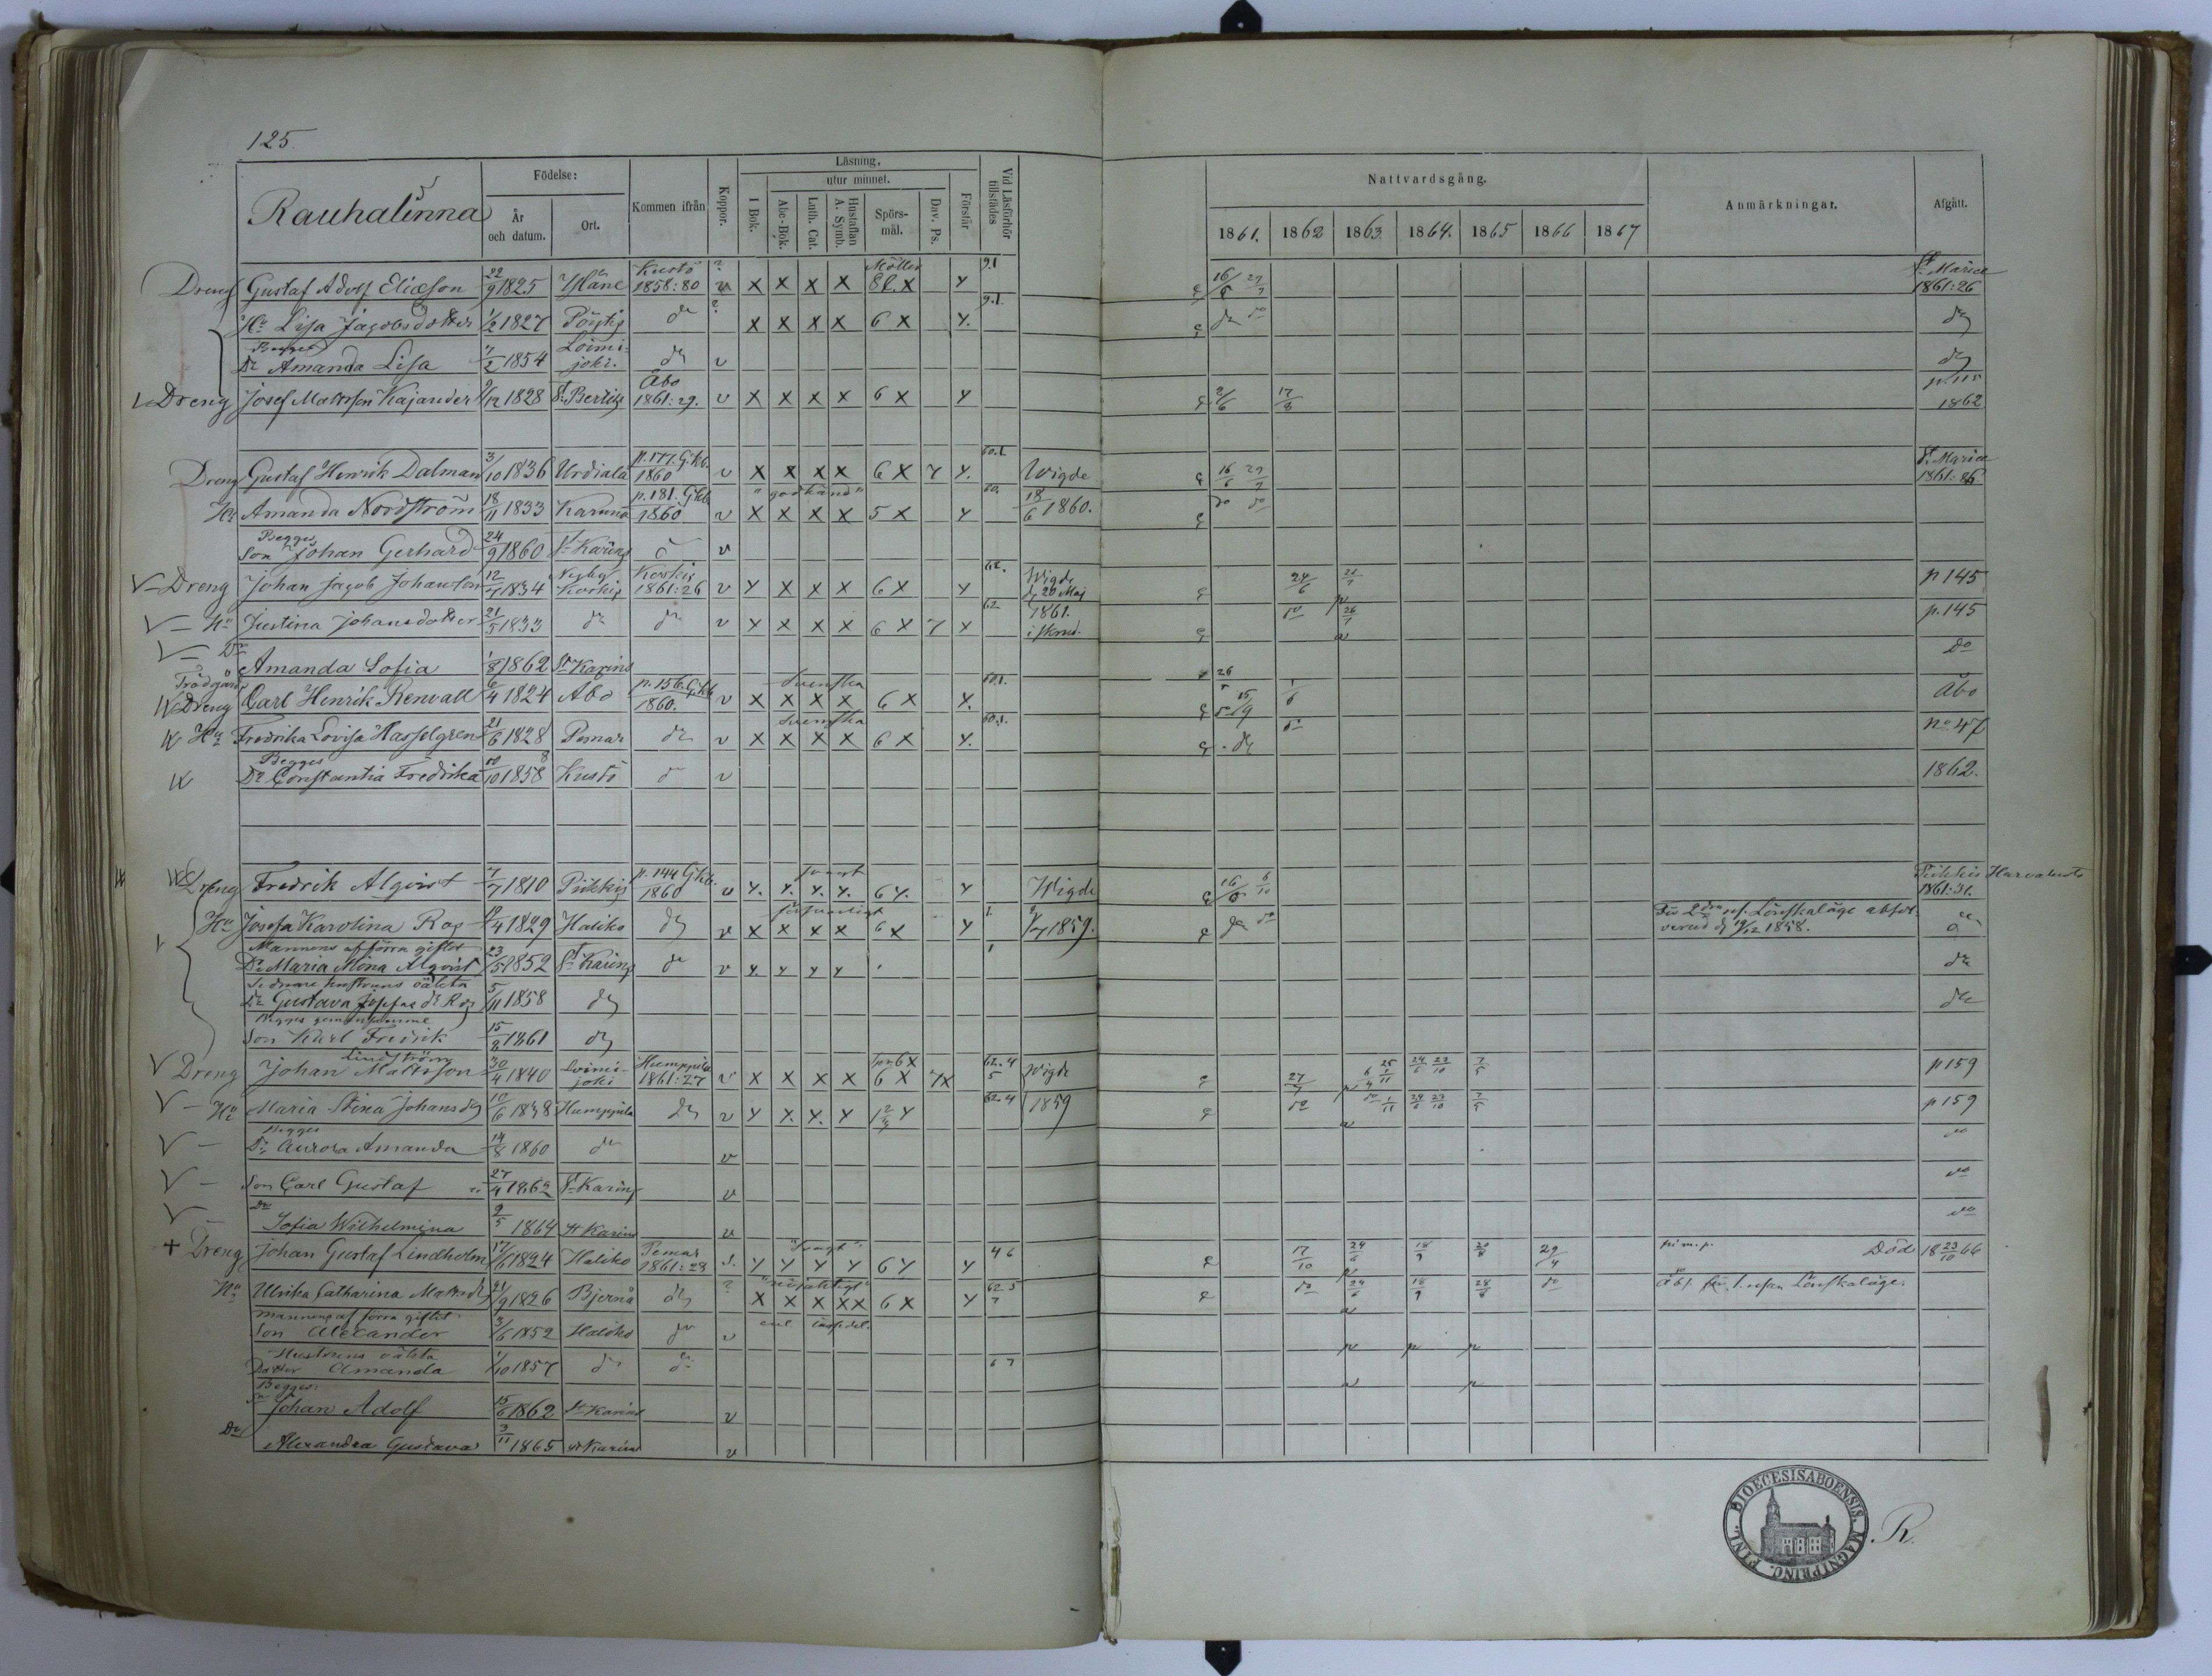 125.
Rauhalinna
Födelse:
År och datum.
Ort.
Kommen ifrån
Koppor.
Läsning.
I Bok.
utur minnet.
Abc-Bok.
Luth. Cat.
Hustaflan A. Symb.
Spörs-mål.
Dav. Ps.
Förstår
Vid Läsförhör tillstädes
Nattvardsgång.
1861. 1862 1863. 1864. 1865 1866 1867
Anmärkningar.
Afgått.
Dreng Gustaf Adolf Eliæson 22/9 1825 Yläne Kustö 1858:80 x x x x 8l. x y 16/6 29/9 St Marice 1861:26
Hu Lisa Jacobsdotter 1/2 1827 Pöytis do x x x x 6 x y. do do do
Begges Dr Amanda Lisa 7/2 1854 Loimijoki. do v do
Dreng Josef Mattsson Kajander 9/12 1828 St Bertils Åbo 1861:29. v x x x x 6 x y 2/6 17/8 1862
Dreng Gustaf Henrik Dalman 3/10 1836 Urdiala p.177. G.kb. 1860 v x x x x 6 x 7 y. 60.1. Wigde 16/6 29/9 St Marice 1861:86.
Hu Amanda Nordström 18/11 1833 Karuna p.181. Gkb. 1860 "godkänd" v x x x x 5 x y 60. 18/6 1860. do do
Begges Son Johan Gerhard 24/9 1860 St Karins v
Dreng Johan Jacob Johansson 12/7 1834 Koskis Koskis 1861:26 v y x x x 6 x y 62. Wigde d 20 Maj 24/6 21/7 p 145
Hu Justina Johansdotter 21/5 1833 do do v y x x x 6 x 7 x 62 1861. do 26/7 p. 145
Dr Amanda Sofia 1/8 1862 St Karins Do
Trädgårds Dreng Carl Henrik Renvall 6/4 1824 Åbo p.156. Gkb 1860. Svenska v x x x x 6 x y. 60.1. Åbo
Hu Fredrika Lovisa Hasselgren 21/6 1828 Pemar do Svenska v x x x x 6 x y. 60.1. do do No 47
Begges Dr Constantia Fredrika 10/10 1858 Kustö v 1862.
Dreng Fredrik Alqvist 7/7 1810 Piikkis p.144 Gkb. 1860 svagt v y. y. y. y. 6 y. y Wigde 16/6 6/10 Piikkis Harvaluoto 1861:31.
Hu Josefa Karolina Ros 19/4 1829 Haliko do v x x x x 6 x y 1859. do do För 2dra res. Lönskaläge absolverad d 19/12 1858. do
Mannens af förra giftet
Dr Maria Mina Alqvist 23/5 1852 St Karins do v y. y y y do
Sednare hustruns oäkta
Dr Gustava Josefas dr Ros 5/11 1858 do do
Begges gemensamme
Son Karl Fredrik 15/8 1861 do
Dreng Johan Mattsson Lindström 30/4 1840 Loimijoki Humppila 1861:27 v x x x x 6 x 7x 62.4 5 Wigde 27/7 24/6 23/10 7/5 p 159
Hu Maria Stina Johansdr 10/6 1838 Humppila do v y x. y. y 62.4 1859 do do 1/11 24/6 23/10 7/5 p 159
Begges
Dr Aurora Amanda 14/8 1860 do v do
Son Carl Gustaf 27/4 1862 St Karins v do
Dr Sofia Wilhelmina 9/5 1864 St Karins v do
Dreng Johan Gustaf Lindholm 17/6 1824 Haliko Pemar 1861:28 "Svagt" y y y y 6 y y 46 17/10 24/6 18/9 29/4 Död 18 23/10 66
Hu Ulrika Catharina Mattsdr 21/9 1826 Bjernå do "nöjaktigt" x x x xx 6 x y do 24/6 18/9 28/8 do
Mannens af förra giftet
Son Alexander 3/6 1852 Haliko do v
Hustruns oäkta
Dotter Amanda 1/10 1857 do do 67
Begges:
Johan Adolf 15/6 1862 St Karins v
Dr Alexandra Gustava 3/11 1865 St Karins v
DIOECESIS ABOENSIS. MAGNI PRINC. FINL.
R.